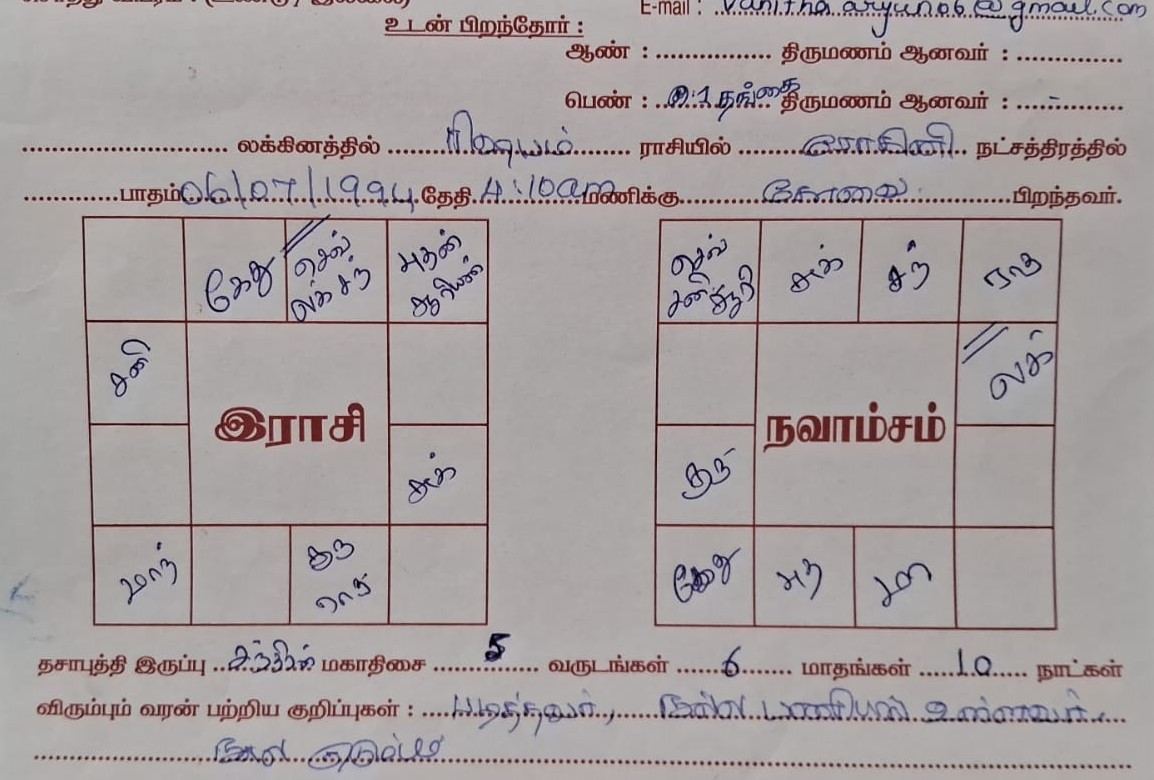 E-mail : vanitha.aryan06@gmail.com
உடன் பிறந்தோர் :
ஆண் : ............... திருமணம் ஆனவர் : ..............
பெண் : 1 தங்கை திருமணம் ஆனவர் : .....-........
லக்கினத்தில் ரிஷபம் ராசியில் ரோகினி நட்சத்திரத்தில்
பாதம் 06/07/1994 தேதி 4:10am மணிக்கு கோவை பிறந்தவர்.
கேது செவ் லக் சந் புதன் சூரியன்
சனி
இராசி
சுக்
மாந் குரு ராகு
செவ் சனி சூரி சுக் சந் ராகு
லக்
நவாம்சம்
குரு
கேது புத மா
தசாபுத்தி இருப்பு சந்திரன் மகாதிசை 5 வருடங்கள் 6 மாதங்கள் 10 நாட்கள்
விரும்பும் வரன் பற்றிய குறிப்புகள் : படித்தவர், நல்ல பணியில் உள்ளவர்,
நல்ல குடும்பம்